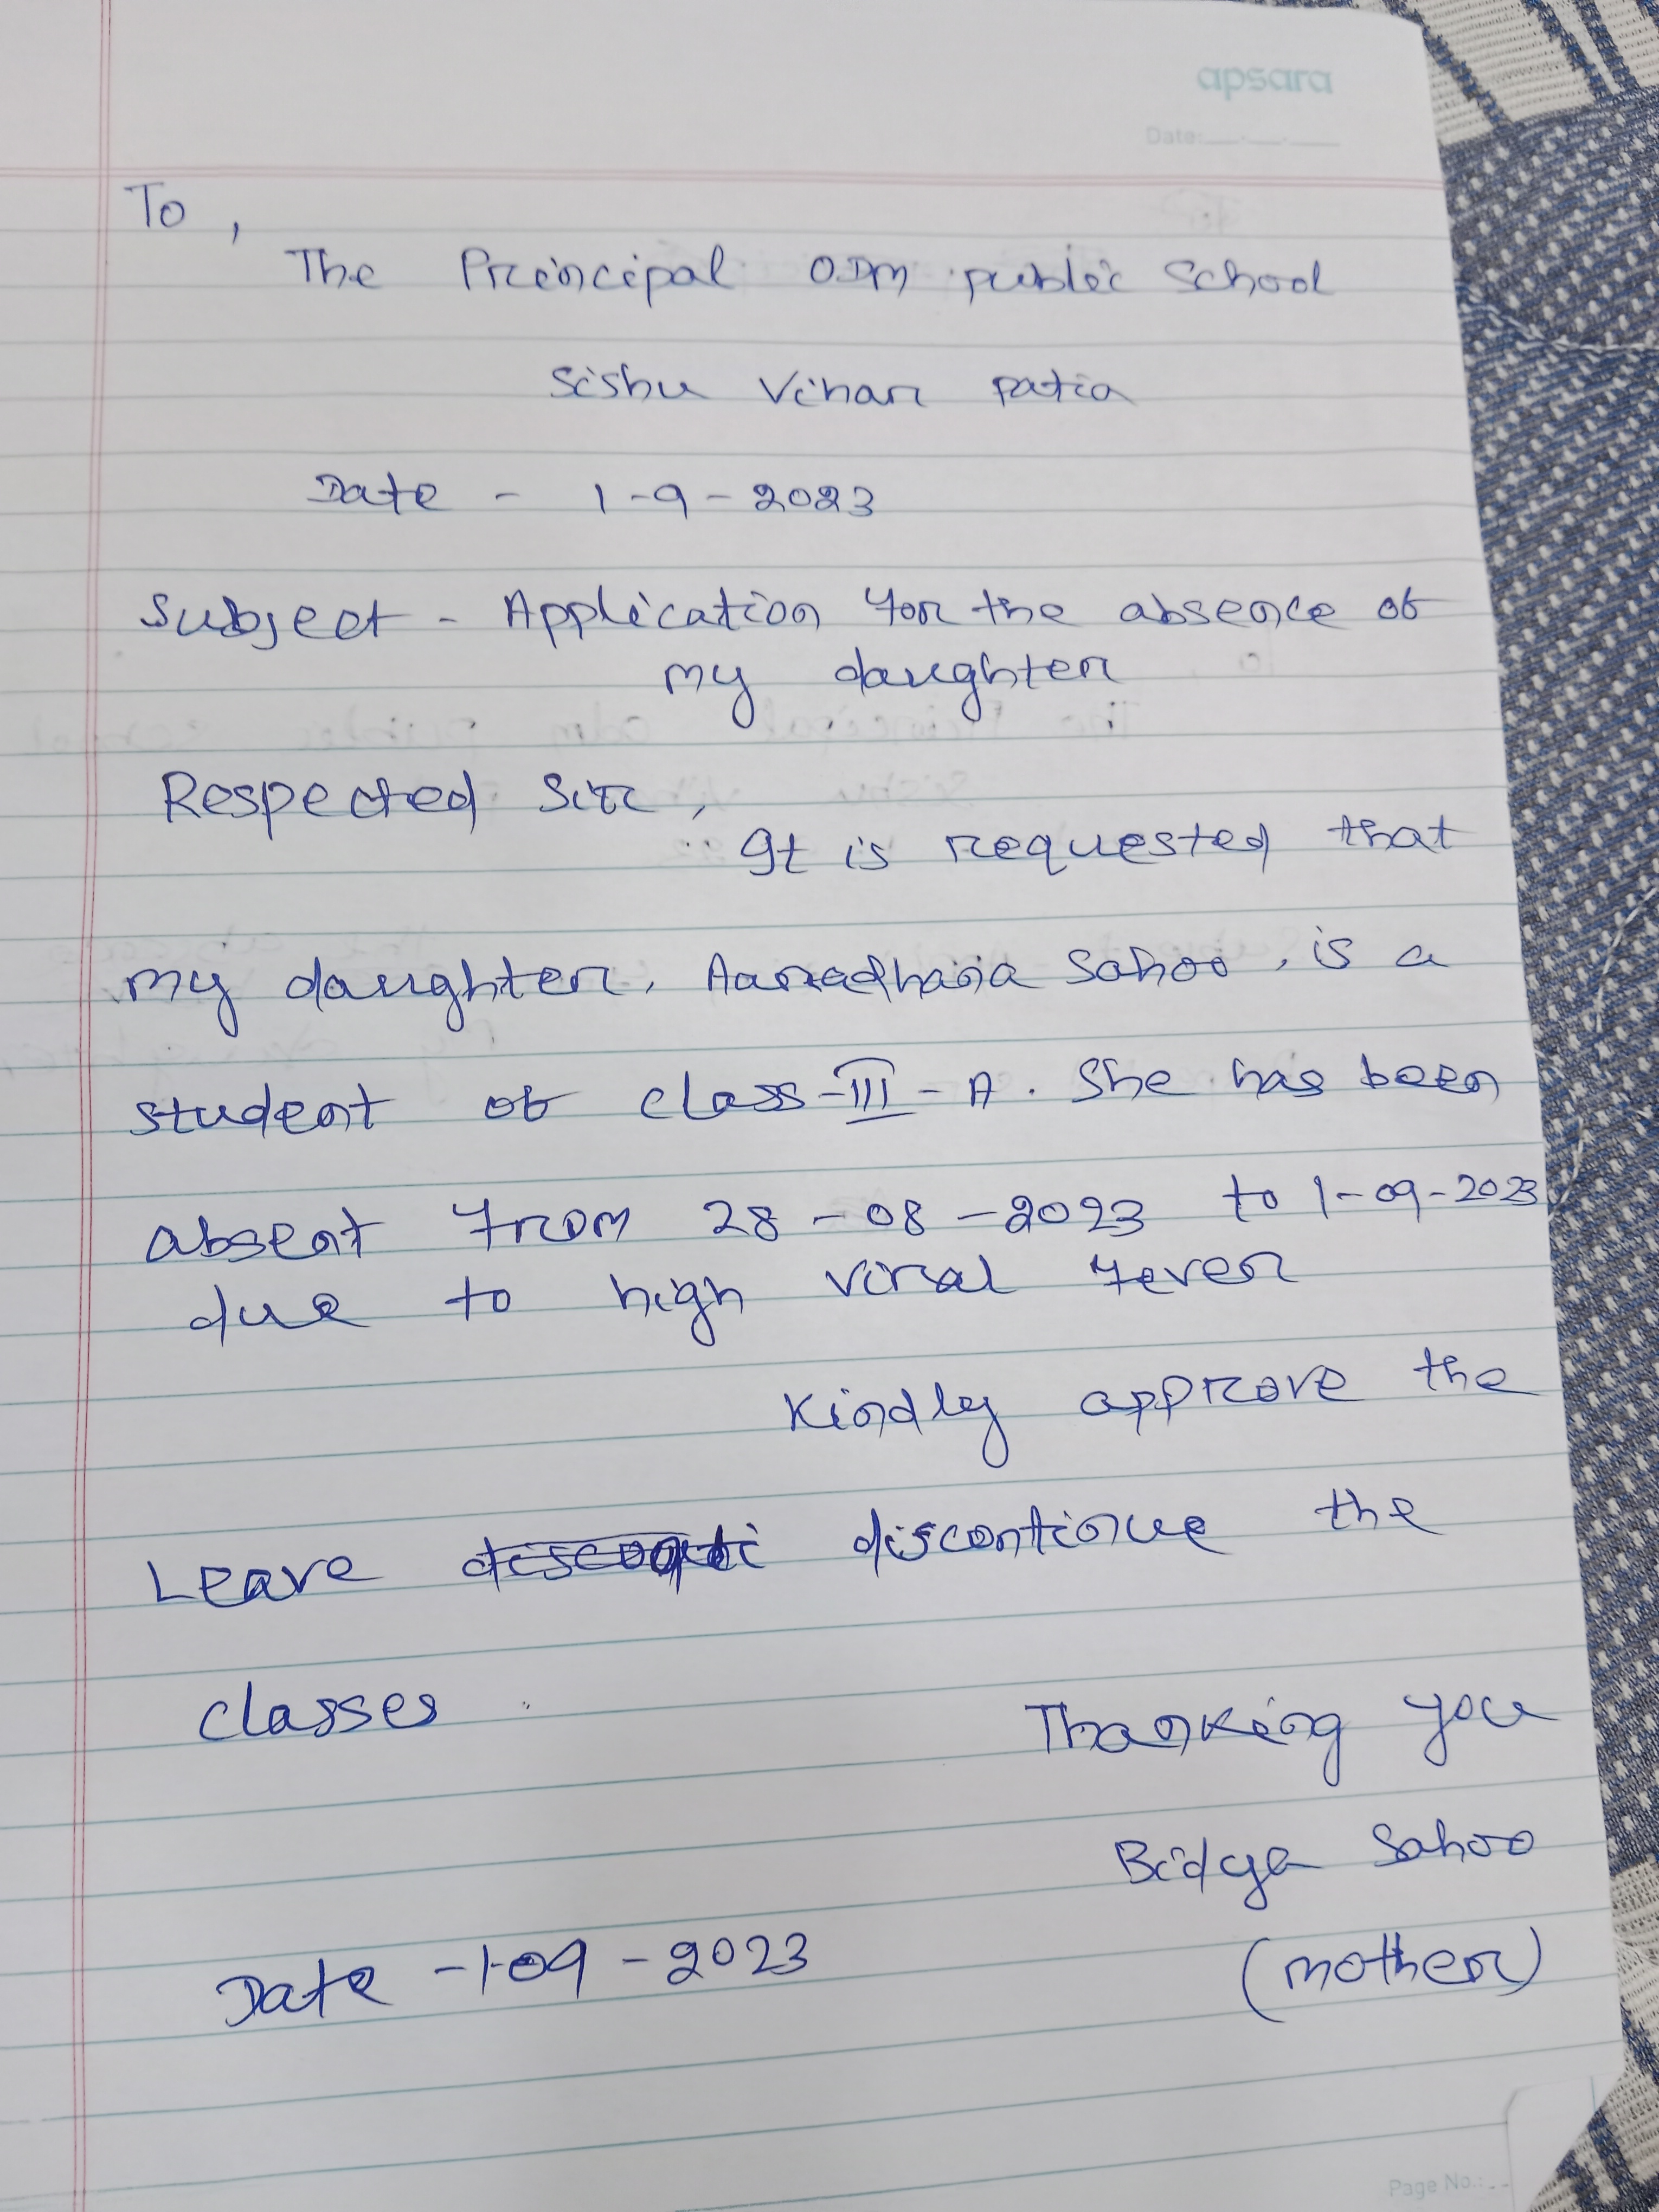 apsara
Date:
To,
The Principal ODM public School
Sishu Vihar patia
Date - 1-9-2023
Subject - Application for the absence of
my daughter
Respected Sir,
It is requested that
my daughter, Aaradhana Sahoo, is a
student of class-III-A. She has been
absent from 28-08-2023 to 1-09-2023
due to high viral fever
Kindly approve the
Leave discontinue the
classes
Thanking you
Bidya Sahoo
(mother)
Date -1-09-2023
Page No.: